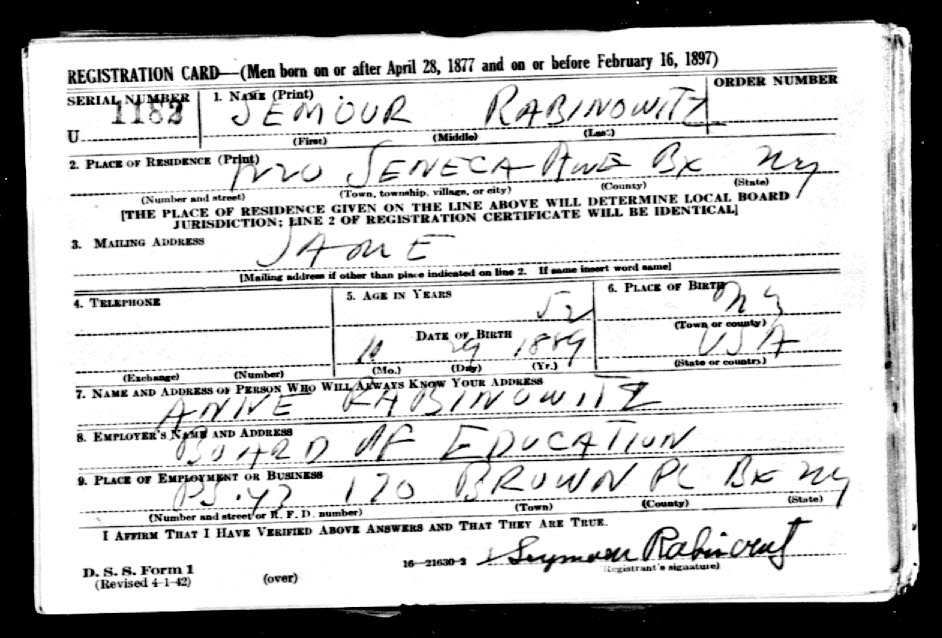 REGISTRATION CARD—(Men born on or after April 28, 1877 and on or before February 16, 1897)
SERIAL NUMBER 1. NAME (Print) ORDER NUMBER
U 1182 SEMOUR RABINOWITZ
(First) (Middle) (Last)
2. PLACE OF RESIDENCE (Print)
SENECA AVE BX NY
(Number and street) (Town, township, village, or city) (County) (State)
[THE PLACE OF RESIDENCE GIVEN ON THE LINE ABOVE WILL DETERMINE LOCAL BOARD
JURISDICTION; LINE 2 OF REGISTRATION CERTIFICATE WILL BE IDENTICAL]
3. MAILING ADDRESS
SAME
[Mailing address if other than place indicated on line 2. If same insert word same]
4. TELEPHONE 5. AGE IN YEARS 6. PLACE OF BIRTH
52 NY
DATE OF BIRTH (Town or county)
10 29 1889 USA
(Exchange) (Number) (Mo.) (Day) (Yr.) (State or country)
7. NAME AND ADDRESS OF PERSON WHO WILL ALWAYS KNOW YOUR ADDRESS
ANNE RABINOWITZ
8. EMPLOYER'S NAME AND ADDRESS
BOARD OF EDUCATION
9. PLACE OF EMPLOYMENT OR BUSINESS
PS. 43 170 BROWN PL BX NY
(Number and street or R. F. D. number) (Town) (County) (State)
I AFFIRM THAT I HAVE VERIFIED ABOVE ANSWERS AND THAT THEY ARE TRUE.
Seymour Rabinowitz
D. S. S. Form 1 16—21630-2 (Registrant's signature)
(Revised 4-1-42) (over)